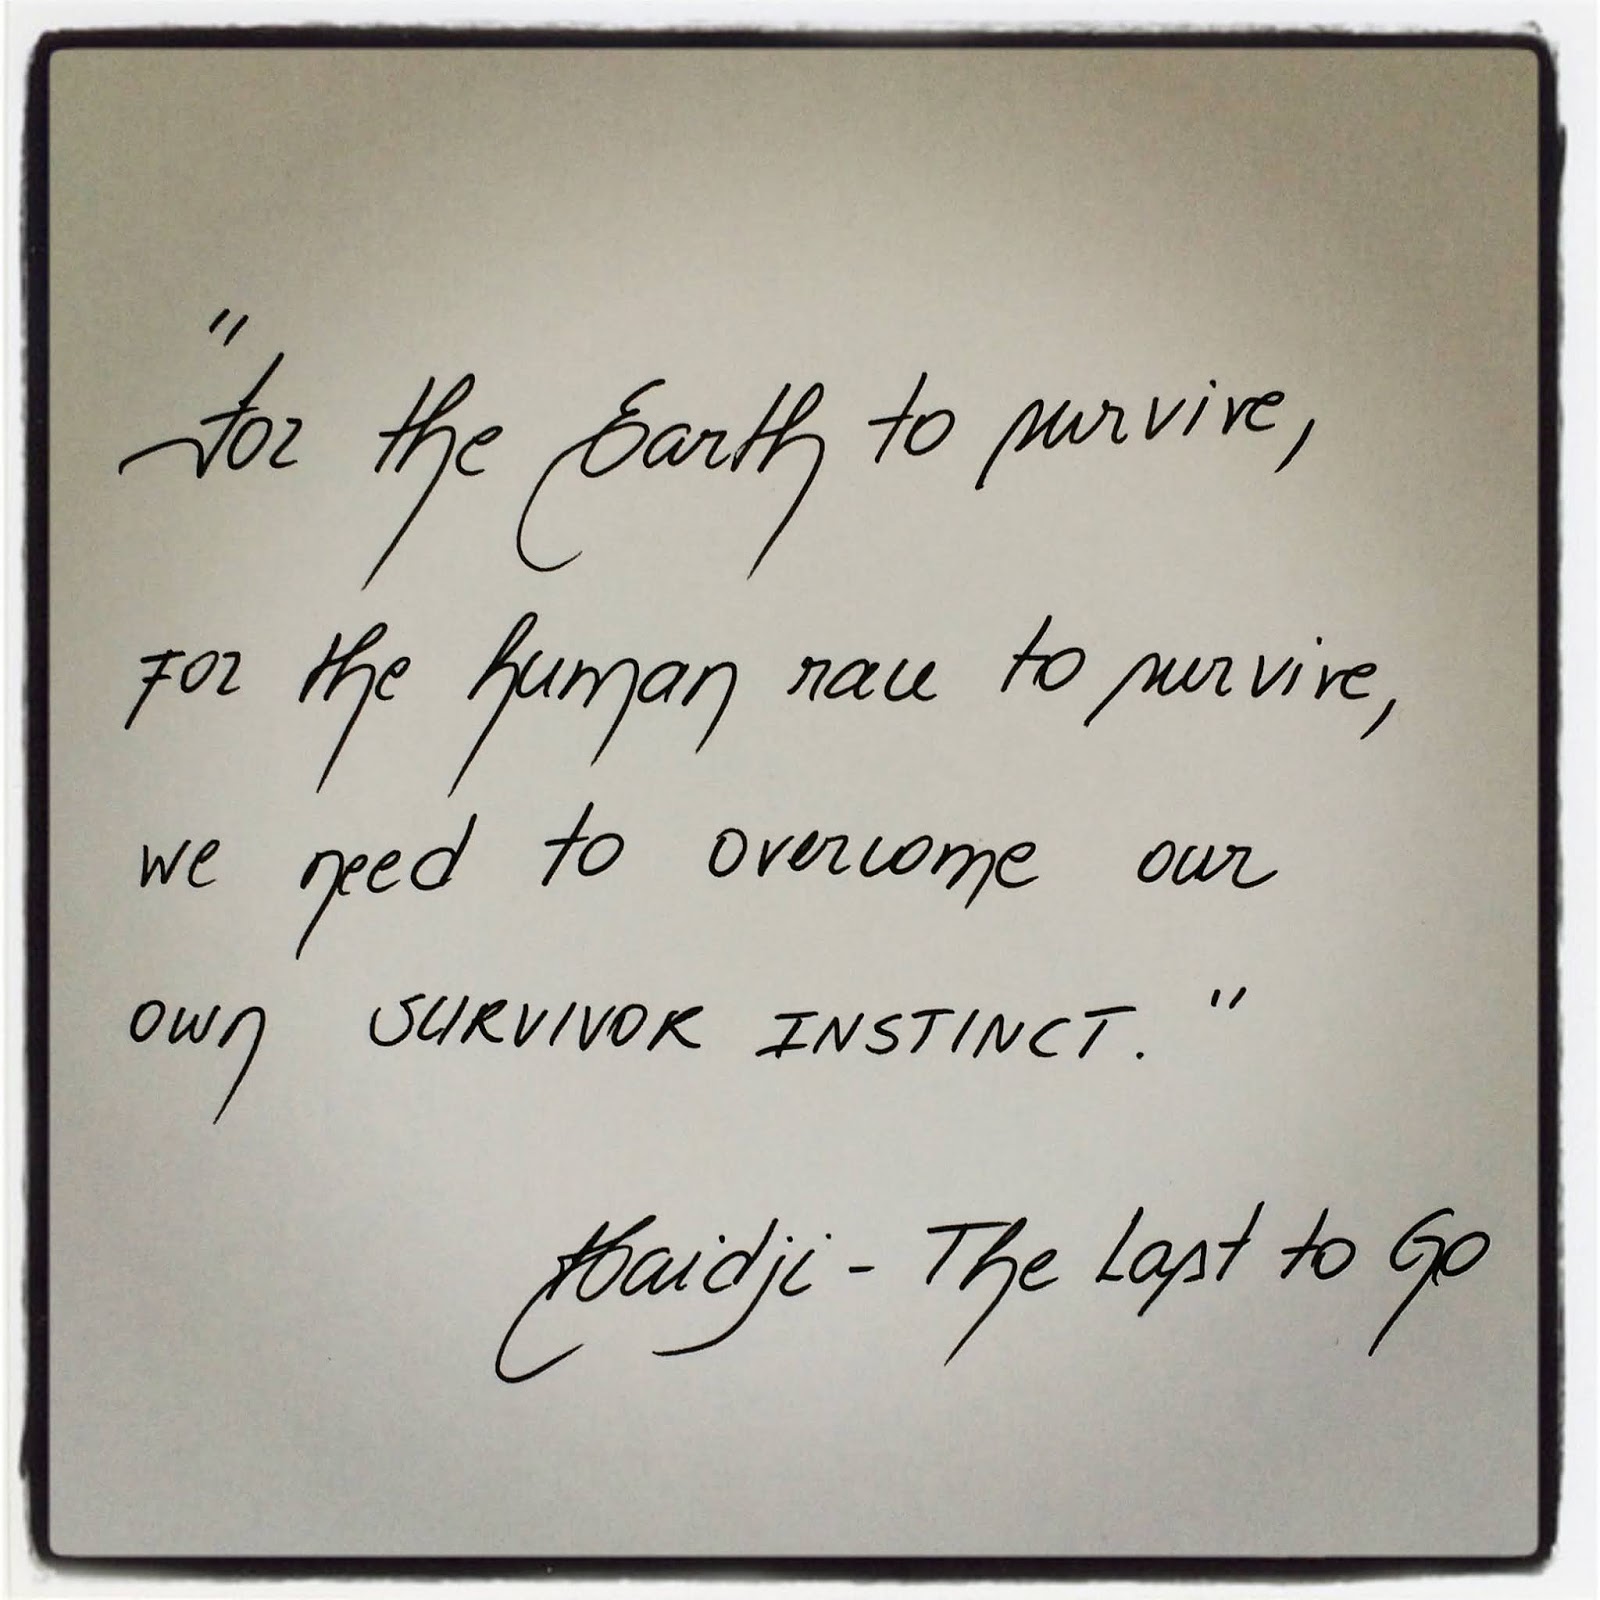 "For the Earth to survive,
For the human race to survive,
we need to overcome our
own SURVIVOR INSTINCT."
Haidji - The Last to Go